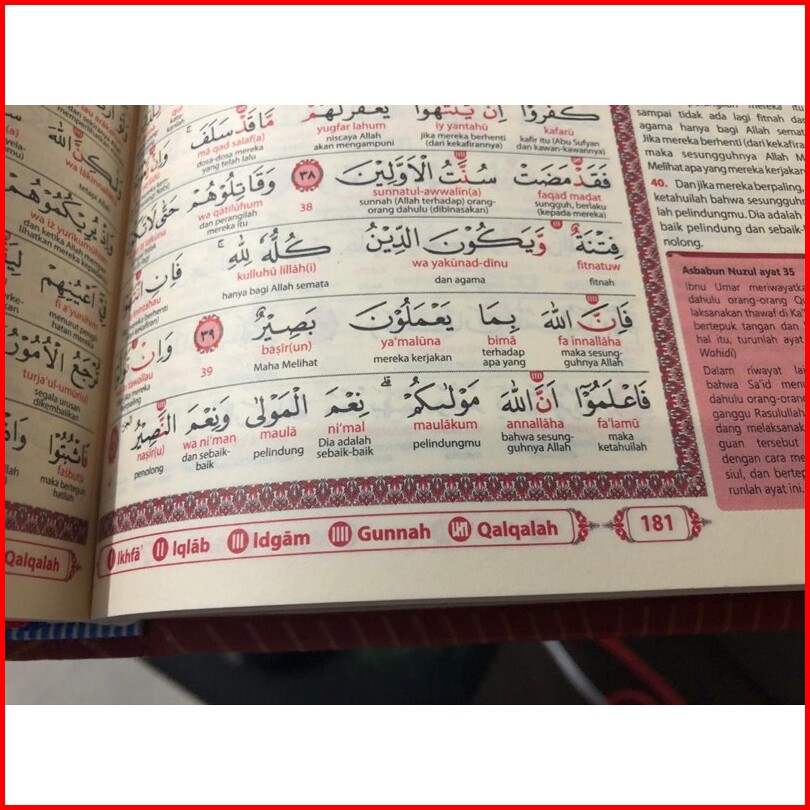 كَفَرُوْٓا اِنْ يَّنْتَهُوْا يُغْفَرْ لَهُمْ مَّا قَدْ سَلَفَۚ وَاِنْ
kafarū iy yantahū yugfar lahum mā qad salaf(a)
kafir itu (Abu Sufyan dan kawan-kawannya) jika mereka berhenti (dari kekafirannya) niscaya Allah akan mengampuni dosa-dosa mereka yang telah lalu
فَقَدْ مَضَتْ سُنَّتُ الْاَوَّلِيْنَ ٣٨ وَقَاتِلُوْهُمْ حَتّٰى
faqad maḍat sunnatul-awwalīn(a) 38 wa qātilūhum
sungguh, berlaku (kepada mereka) sunnah (Allah terhadap) orang-orang dahulu (dibinasakan) dan perangilah mereka itu
فِتْنَةٌ وَّيَكُوْنَ الدِّيْنُ كُلُّهٗ لِلّٰهِۚ فَاِنِ
fitnatuw wa yakūnad-dīnu kulluhū lillāh(i)
fitnah dan agama hanya bagi Allah semata
فَاِنَّ اللّٰهَ بِمَا يَعْمَلُوْنَ بَصِيْرٌ ٣٩ وَاِنْ
fa innallāha bimā ya'malūna baṣīr(un) 39
maka sesungguhnya Allah terhadap apa yang mereka kerjakan Maha Melihat
فَاعْلَمُوْٓا اَنَّ اللّٰهَ مَوْلٰىكُمْۗ نِعْمَ الْمَوْلٰى وَنِعْمَ النَّصِيْرُ
fa'lamū annallāha maulākum ni'mal maulā wa ni'man naṣīr(u)
maka ketahuilah bahwa sesungguhnya Allah pelindungmu Dia adalah sebaik-baik pelindung dan sebaik-baik penolong
Ikhfā' Iqlāb Idgām Gunnah Qalqalah 181
sampai tidak ada lagi fitnah dan
agama hanya bagi Allah semat
Jika mereka berhenti (dari kekafira
maka sesungguhnya Allah M
Melihat apa yang mereka kerjakan
40. Dan jika mereka berpaling,
ketahuilah bahwa sesungguh
lah pelindungmu. Dia adalah
baik pelindung dan sebaik-b
nolong.
Asbabun Nuzul ayat 35
Ibnu Umar meriwayatka
dahulu orang-orang Qu
laksanakan thawaf di Ka'
bertepuk tangan dan
hal itu, turunlah ayat
Wohidi)
Dalam riwayat lai
bahwa Sa'id menu
dahulu orang-orang
ganggu Rasulullah
dang melaksanak
guan tersebut
dengan cara me
siul, dan bertep
runlah ayat ini.
تُرْجَعُ الْاُمُوْرُ
turja'ul-umūr(u)
segala urusan
dikembalikan
فَاثْبُتُوْا
faṡbutū
maka berteguh
hatilah
Qalqalah